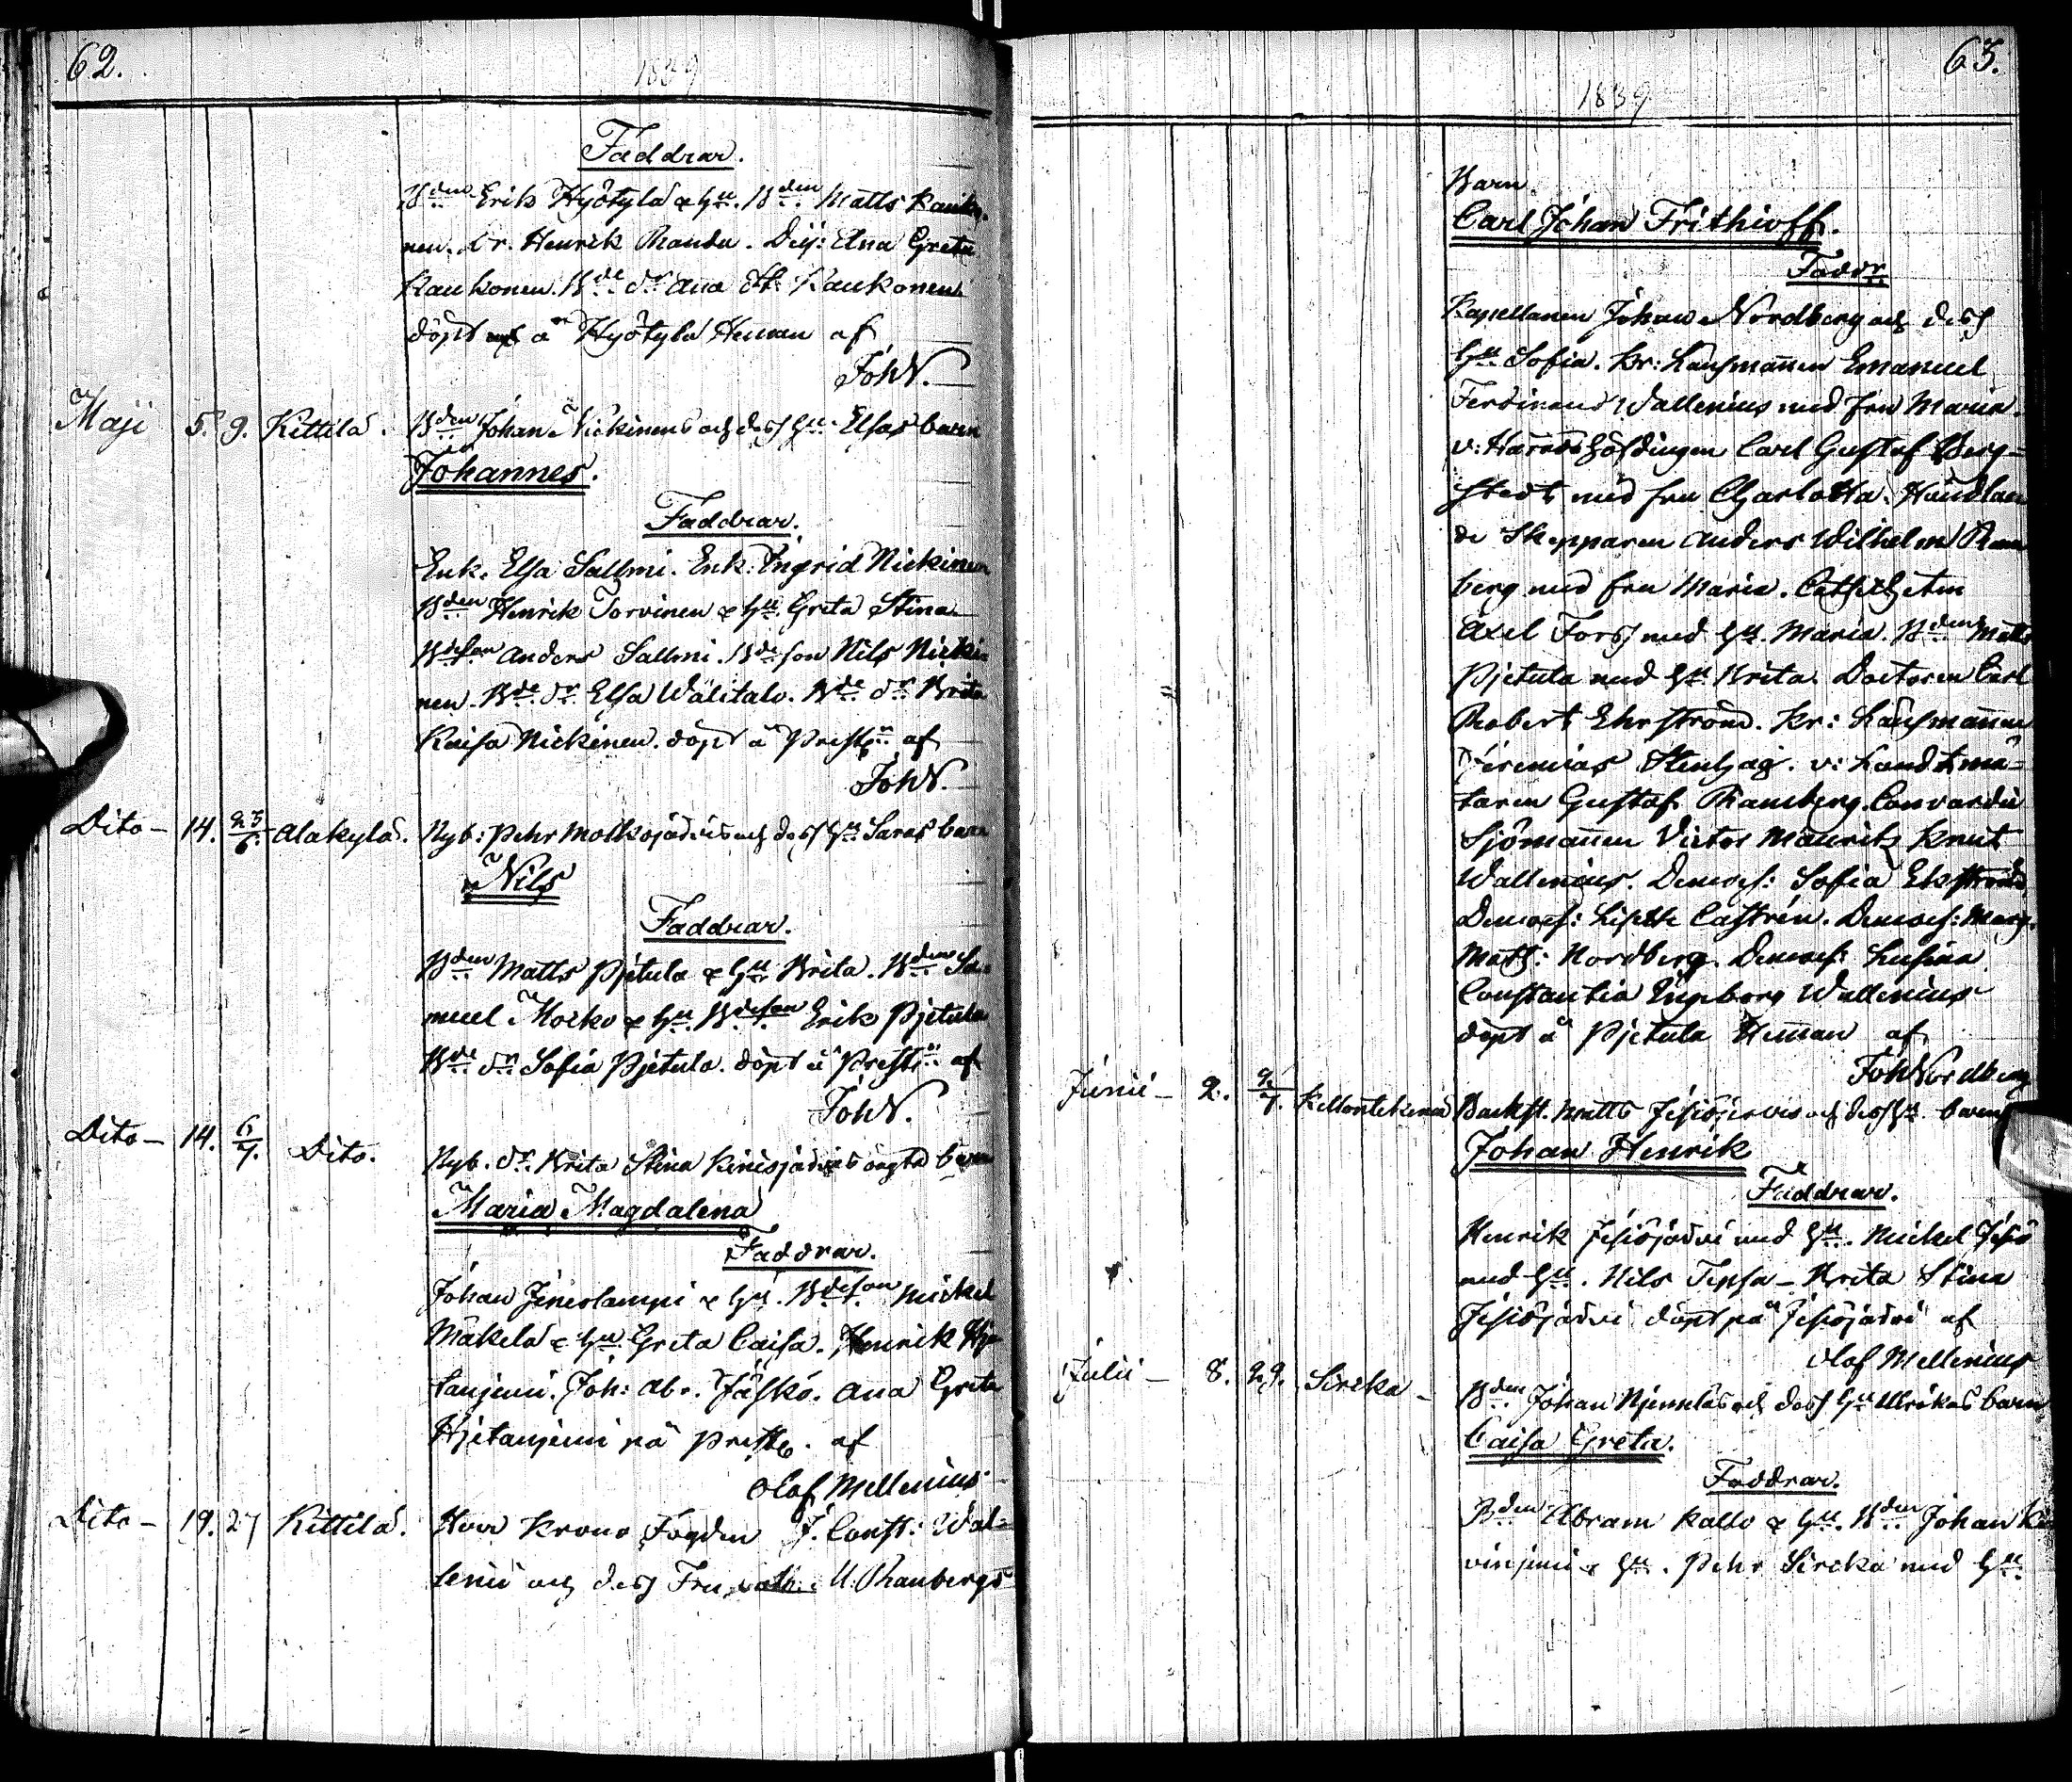 62.
1839
Faddrar.
Bden Erik Hyötylä & hu. Bden Matts Kauko-
nen. Dr. Henrik Randa. Pig: Ana Greta
Kaukonen. Bde dr Ana St: Kaukonen.
döpt å Hyötylä Heman af
JohN.
Maji 5. 9. Kittilä. Bden Johan Nickinens och dess hu: Elsas barn
Johannes.
Faddrar.
Enk. Elsa Sallmi. Enk. Ingrid Nickinen
Bden Henrik Torvinen & hu. Greta Stina
Bdeson Anders Sallmi. Bdeson Nils Nicki-
nen. Bde dr Elsa Wälitalo. Bde dr Brita
Kaisa Nickinen. döpt å Prestgn af
JohN.
Dito – 14. 23/6. Alakylä. Nyb: Pehr Molkojärvis och dess hu Saras barn
Nils
Faddrar.
Bden Matts Pjetula & hu Brita. Bden Sa-
muel Morko & hu. Bdeson Erik Pjetula
Bde dr Sofia Pjetula. döpt å Prestgn af
JohN.
Dito – 14. 6/7. Dito. Nyb. dr. Brita Stina Kinisjärvis oägta barn
Maria Magdalena
Faddrar.
Johan Jineslampi & hu. Bdeson Mickel
Mäkelä & hu Greta Caisa. Henrik Hje-
tanjemi. Joh: Abr. Jäskö. Ana Greta
Hjetanjemi på Prestg. af
Olof Mellenius
Dito – 19. 27 Kittilä. Herr Krono Fogden J. Const: Wal-
lenii och dess Fru M: Ranbergs
63.
1839
Barn
Carl Johan Frithioff.
Faddr
Kapellanen Johan Nordberg och dess
hu Sofia. Kr: Länsmannen Emanuel
Ferdinand Wallenius med fru Maria.
v: Häradshöfdingen Carl Gustaf Berg-
stedt med fru Charlotta. Handlan-
de Skepparen Anders Wilhelm Ran
berg med fru Maria. Cathechetn
Axel Forss med hu. Maria. Bden Matts
Pjetula med hu Brita. Doctoren Carl
Robert Ehrström. Kr: Länsmannen
Jeremias Stenhag. v: Landtmä-
taren Gustaf Ranberg. Convardie
Sjömannen Victor Mauritz Knut
Wallenius. Demois: Sofia Ekström
Demois: Lisette Castrén. Demois: Marg.
Math: Nordberg. Demois: Lusina
Constantia Ingeborg Wallenius
döpt å Pjetula Heman af
JohNordberg
Junii – 2. 9/7. Kellontekemä Backst. Matts Jesiöjervis och dess hu. barn
Johan Henrik
Faddrar.
Henrik Jesiöjärvi med hu. Mickel Jesiö
med hu. Nils Tepsa – Brita Stina
Jesiöjärvi döpt på Jesiöjärvi af
Olof Mellenius
Julii – 8. 29. Sircka – Bden Johan Njemeläs och dess hu Ulrikas barn
Caisa Greta.
Faddrar.
Bden Abram Kallo & hu. Bden Johan Ki-
vinjemi & hu. Pehr Sircka med hu